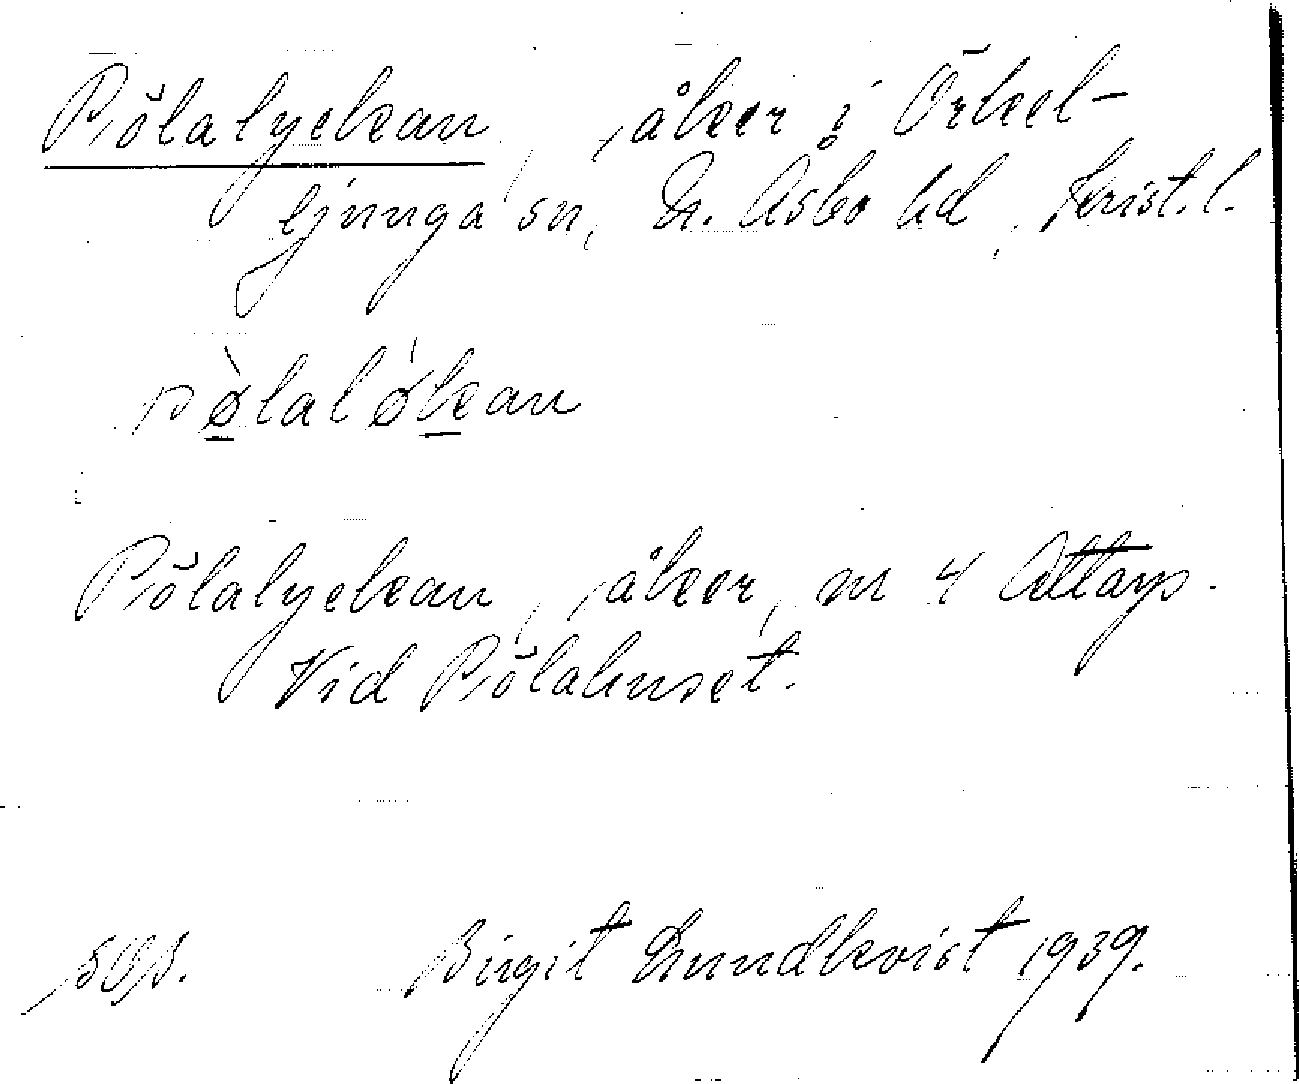 Pölalyckan, åker i Örkel-
ljunga sn, N. Åsbo hd, Krist. l.
pølaløkan
Pölalyckan, åker, nr 4 Attarp.
Vid Pölahuset.
Birgit Lundkvist 1939.